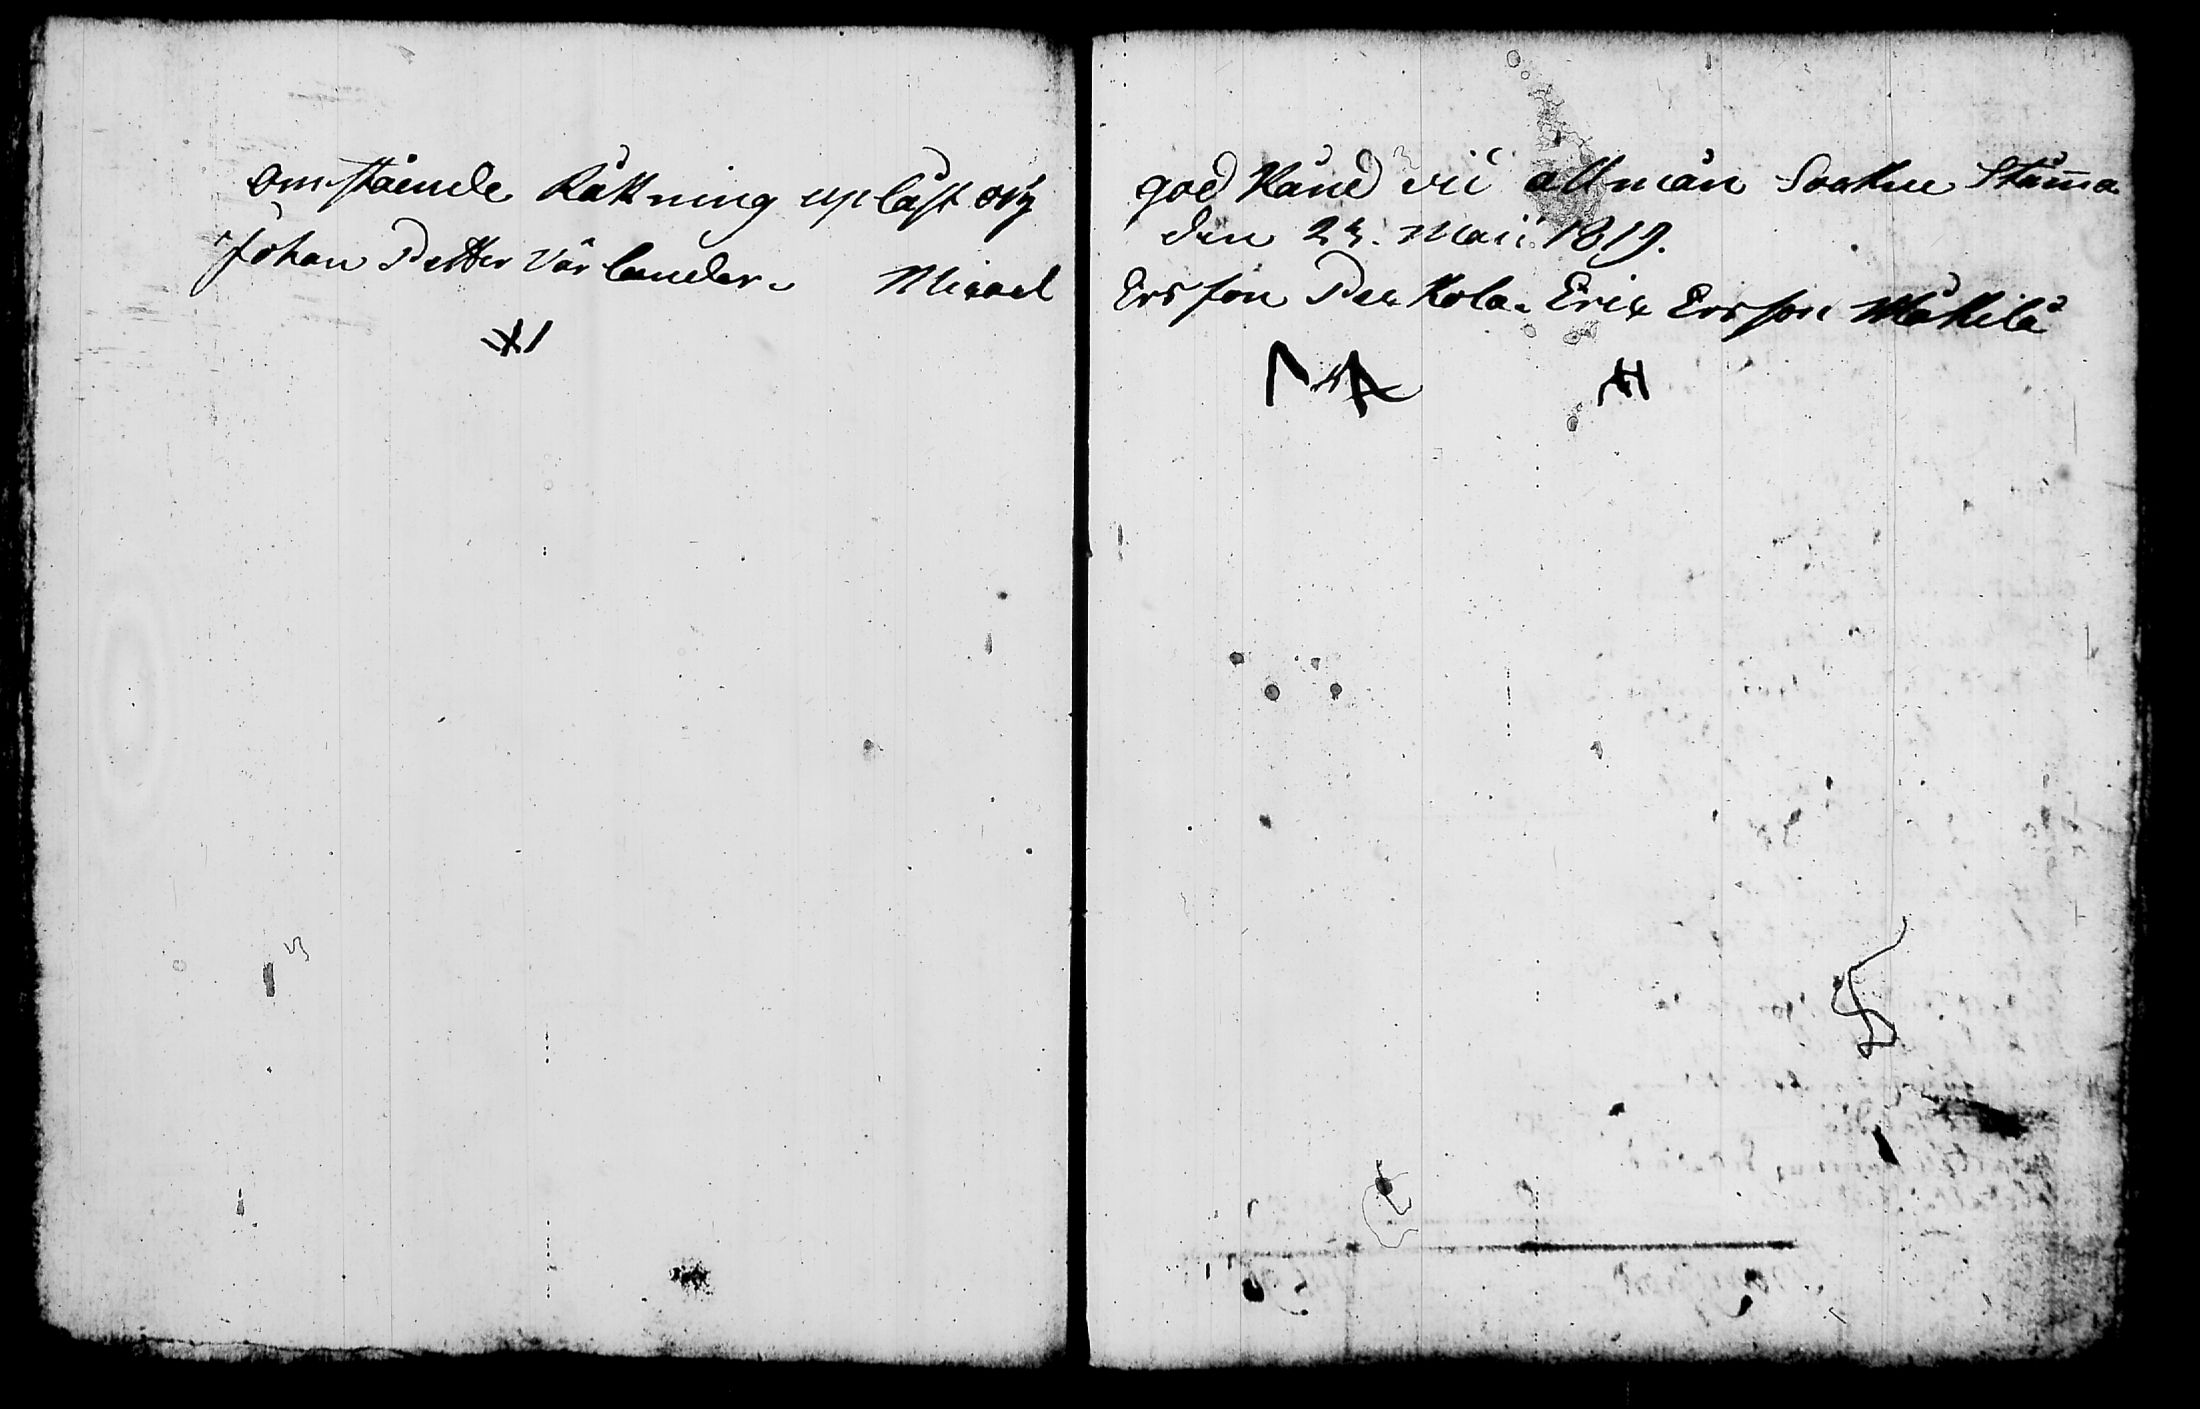 omstående Räkning upläst och
Johan Petter Vörlander. Misael
godkänd vid allmän Sockne Stäm̅a
den 23. Maii 1819.
Ersson Perkola. Eric Ersson Mäkilä